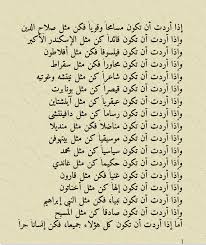 إذا أردت أن تكون مسامحا وقويا فكن مثل صلاح الدين
وإذا أردت أن تكون قائدا كن مثل الإسكندر الأكبر
وإذا أردت أن تكون فيلسوفا فكن مثل أفلاطون
وإذا أردت أن تكون محاورا فكن مثل سقراط
وإذا أردت أن تكون شاعرا كن مثل نيتشه وغوتيه
وإذا أردت أن تكون قيصرا كن مثل بونابرت
وإذا أردت أن تكون عبقريا كن مثل أينشتاين
وإذا أردت أن تكون رساما كن مثل دافينتشي
وإذا أردت أن تكون مناضلا فكن مثل منديلا
وإذا أردت أن تكون موسيقيا كن مثل بيتهوفن
وإذا أردت أن تكون حكيما كن مثل محمد
وإذا أردت أن تكون حكيما كن مثل غاندي
وإذا أردت أن تكون غنيا فكن مثل قارون
وإذا أردت أن تكون إلها كن مثل أخناتون
وإذا أردت أن تكون نبيا، فكن مثل النبي إبراهيم
وإذا أردت أن تكون صادقا كن مثل المسيح
أما إذا أردت أن تكون كل هؤلاء جميعا، فكن إنسانا حرا